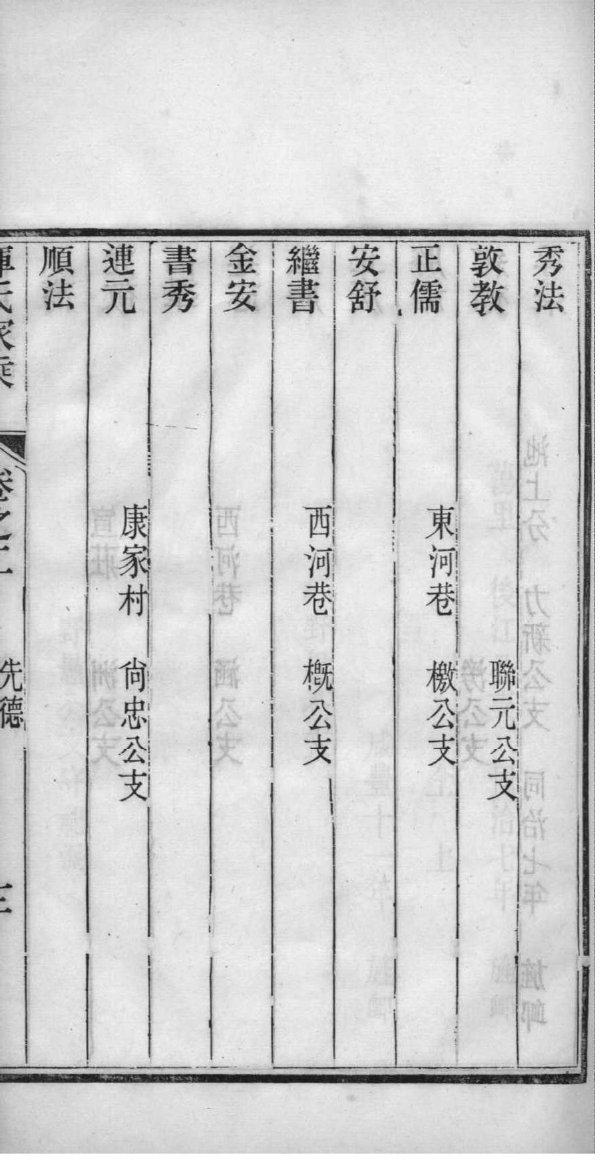 秀法
敦教 聯元公支
正儒 東河巷 檄公支
安舒
繼書 西河巷 槪公支
金安
書秀
連元 康家村 尙忠公支
順法
氏家乘 卷之 先德